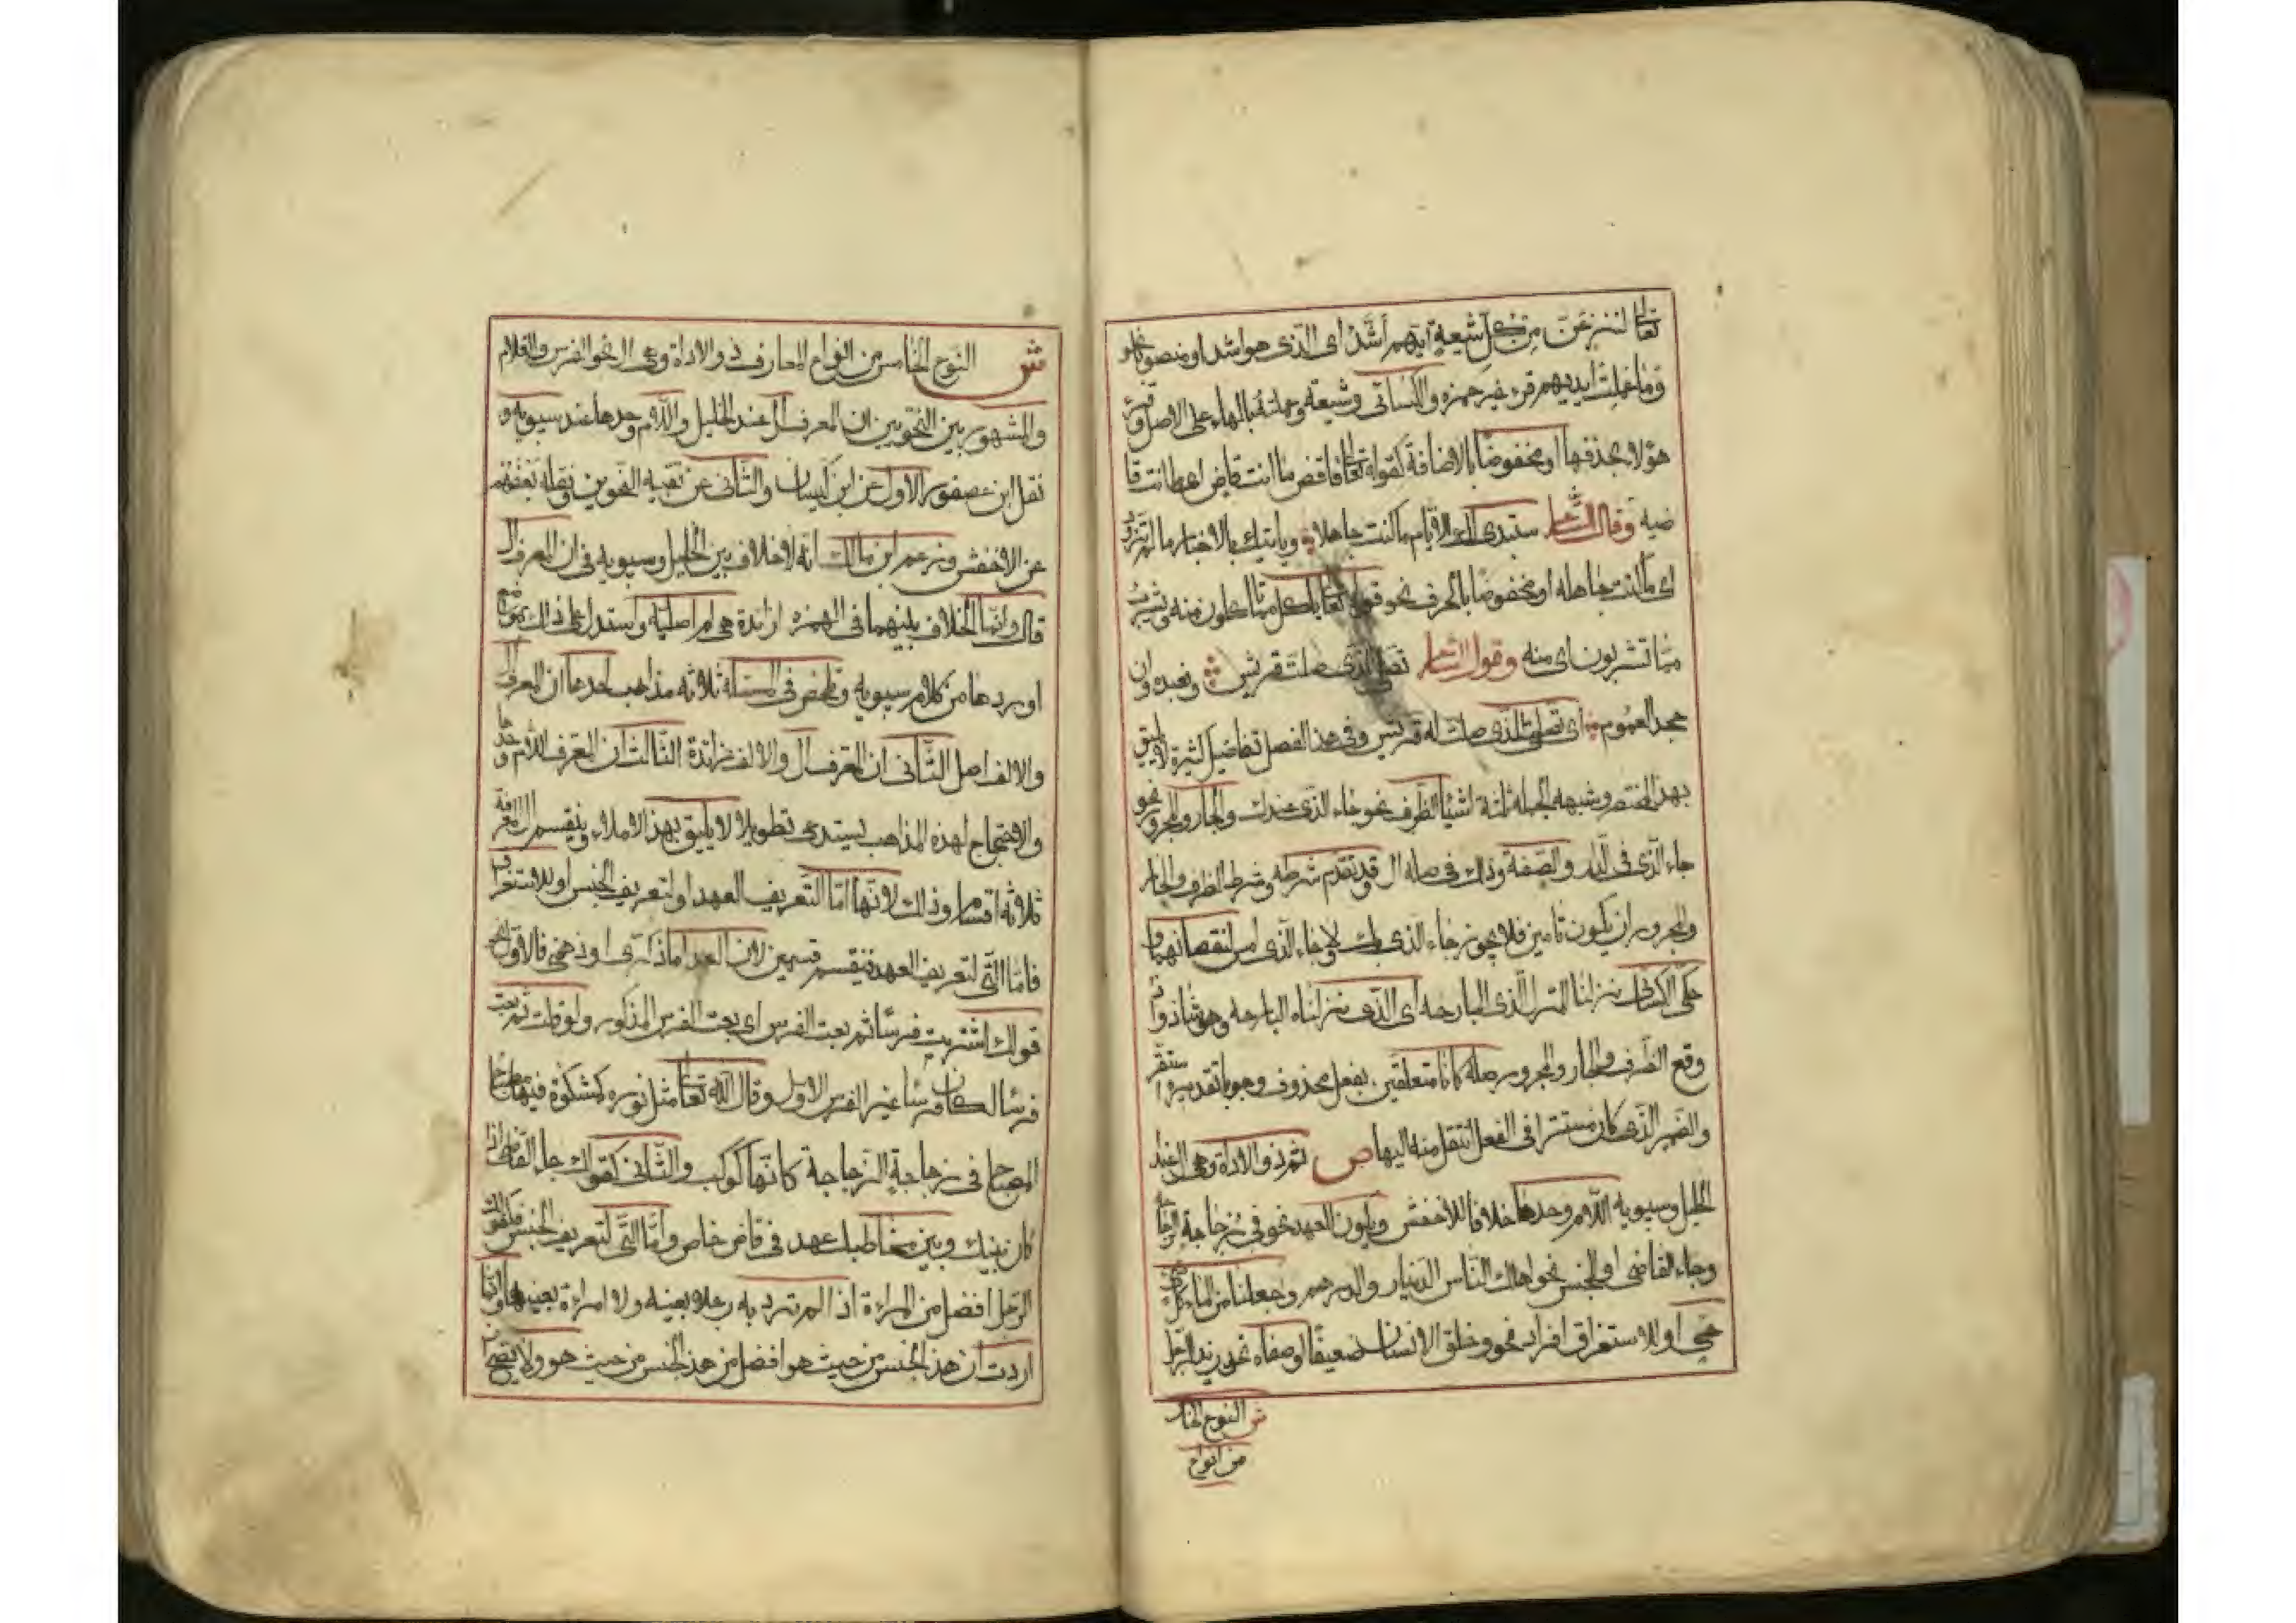 تعالى لننزعن من كل شيعة ايهم أشد اى الذى هو اشد او منصوبا نحو
وما عملت ايديهم قرء غير حمزه والكسائى وشيعته وما عملته بالهاء على الاصل وقرء
هؤلاء بحذفها او مخفوضا بالاضافة كقوله تعالى فاقض ما انت قاض اى ما انت قا
ضيه وقال الشاعر ستبدى لك الايام ما كنت جاهلا ويأتيك بالاخبار ما لم تزود
اى ما كنت جاهله او مخفوضا بالحرف نحو قوله تعالى يأكل مما تأكلون منه ويشرب
مما تشربون اى منه وقول الشاعر نصلى للذى صلت قريش ونعبده وان
جحد العموم اى نصلى للذى صلت له قريش وفى هذا الفصل تفاصيل كثيرة لا يليق
بهذا المختصر وشبهه الجملة ثلثة اشياء الظرف نحو جاء الذى عندك والجار والمجرور نحو
جاء الذى فى الدار والصفة وذلك فى صلة ال وقد تقدم شرطه وشرط الظرف والجار
والمجرور ان يكون تامين فلا يجوز جاء الذى بك ولا جاء الذى امس لنقصانهما و
حكى الكسائى نزلنا المنزل الذى البارحه اى الذى نزلناه البارحه وهو شاذ واذ
وقع الظرف والجار والمجرور صلة كانا متعلقين بفعل محذوف وجوبا تقديره استقر
والضمير الذى كان مستترا فى الفعل انتقل منه اليها ص ثم ذو الاداة وهى ال عند
الخليل وسيبويه اللام وحدها خلافا للاخفش ويكون للعهد نحو فى زجاجة الزجاجة
وجاء القاضى او للجنس نحو اهلك الناس الدينار والدرهم وجعلنا من الماء كل شئ
حى او للاستغراق افراده نحو وخلق الانسان ضعيفا او صفاته نحو زيد الرجل
ش النوع الخامس
من انواع
ش النوع الخامس من انواع المعارف ذو الاداة وهى ال نحو الفرس والغلام
والمشهور بين النحويين ان المعرف أل عند الخليل واللام وحدها عند سيبويه و
نقل ابن عصفور الاول عن ابن كيسان والثانى عن بقيه النحوين ونقله بعضهم
عن الاخفش وزعم ابن مالك انه لا خلاف بين الخليل وسيبويه فى ان المعرف ال
قال وانما الخلاف بينهما فى الهمزه ازائدة هى ام اصلية واستدل على ذلك بمواضع
اوردها من كلام سيبويه وتلخص فى المسئلة ثلاثه مذاهب احدها ان المعرف ال
والالف اصل الثانى ان المعرف أل والالف زائدة الثالث ان المعرف اللام وحدها
والاحتجاج لهذه المذاهب يستدعى تطويلا لا يليق بهذا الاملاء وينقسم ال المعرفة
ثلاثة اقسام وذلك لانها اما لتعريف العهد او لتعريف الجنس او للاستغراق
فاما التى لتعريف العهد فينقسم قسمين لان العهد اما ذكرى او ذهنى فالاول نحو
قولك اشتريت فرسا ثم بعت الفرس اى بعت الفرس المذكور ولو قلت ثم بعت
فرسا لكان فرسا غير الفرس الاول وقال الله تعالى مثل نوره كمشكوة فيها مصباح
المصباح فى زجاجة الزجاجة كانها كوكب والثانى كقولك جاء القاضى اذا
كان بينك وبين مخاطبك عهد فى قاض خاص واما التى لتعريف الجنس فكقولك
الرجل افضل من المراءة اذا لم ترد به رجلا بعينه ولا امراءة بعينها وانما
اردت ان هذا الجنس من حيث هو افضل من هذا الجنس من حيث هو ولا يصح